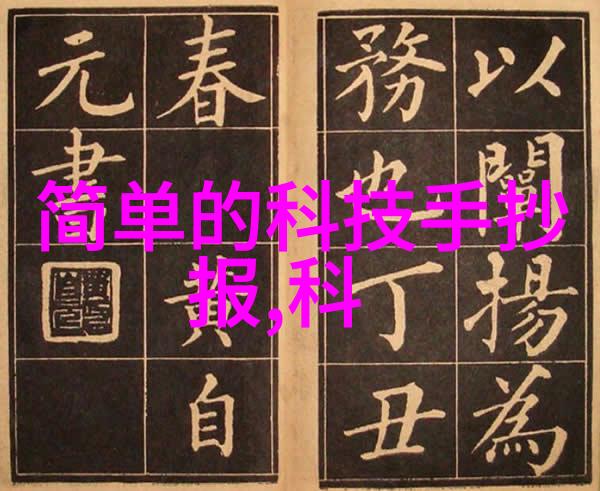 以闡揚為
務也丁丑
春黃自
元書
简单的科技手抄
报,科